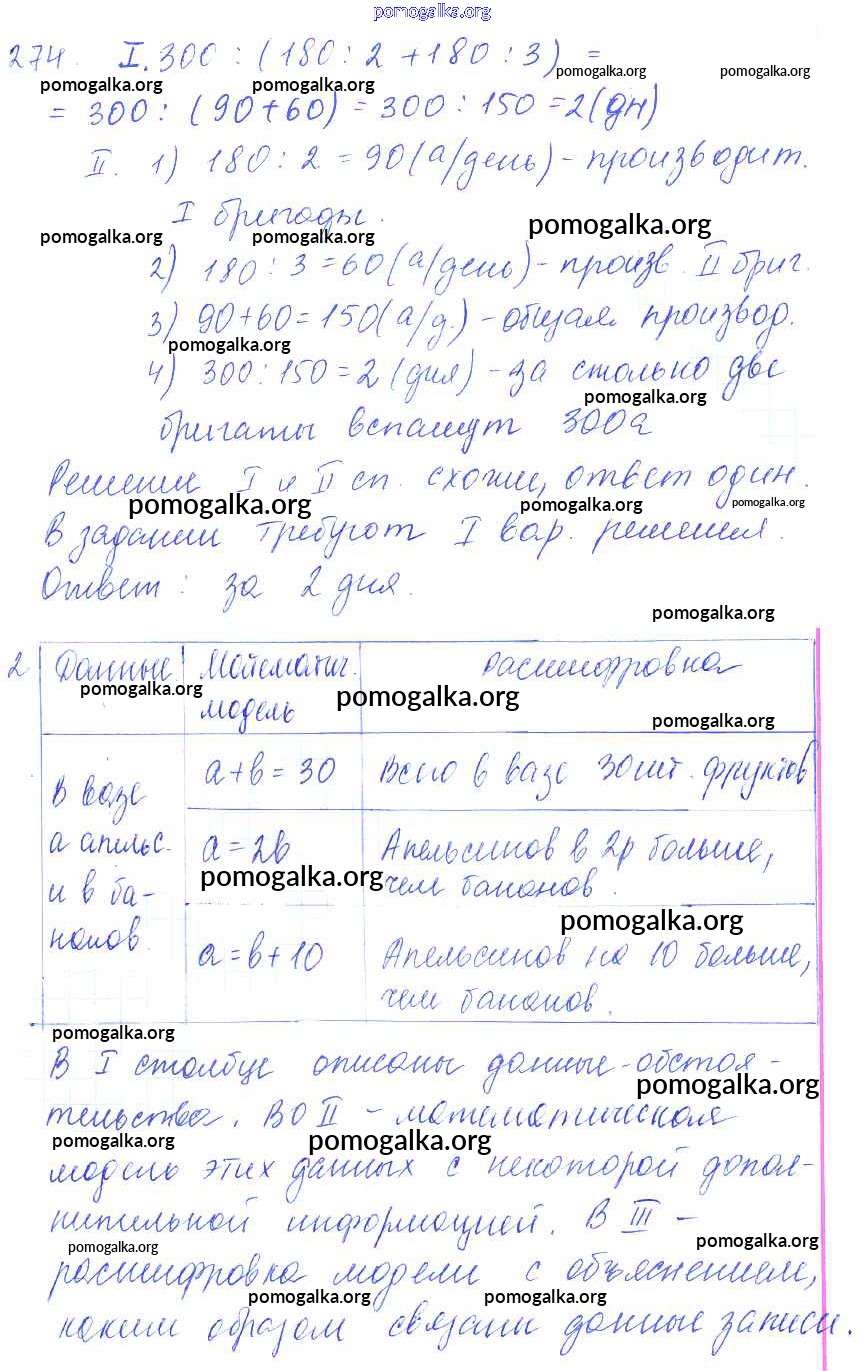 pomogalka.org
274. I. 300 : (180 : 2 + 180 : 3) =
pomogalka.org pomogalka.org pomogalka.org pomogalka.org
= 300 : (90+60) = 300 : 150 = 2 (дн)
II. 1) 180 : 2 = 90 (а/день) - производит.
I бригады.
pomogalka.org pomogalka.org pomogalka.org
2) 180 : 3 = 60 (а/день) - произв. II бриг.
3) 90+60=150(а/д.) - общая производ.
pomogalka.org
4) 300 : 150 = 2 (дня) - за столько две
pomogalka.org
бригаты вспашут 300а
Решение I и II сп. схожи, ответ один.
pomogalka.org pomogalka.org pomogalka.org
В задании требуют I вар. решения.
Ответ : за 2 дня.
pomogalka.org
2 Данные Математич. Расшифровка
pomogalka.org pomogalka.org
модель
pomogalka.org
a+b=30 Всего в вазе 30шт. фруктов
В вазе
а апельс. a=2b Апельсинов в 2р больше,
pomogalka.org
и в ба- чем бананов.
pomogalka.org
нанов. a=b+10 Апельсинов на 10 больше,
чем бананов.
pomogalka.org
В I столбце описаны данные-обстоя-
pomogalka.org
тельства. Во II - математическая
pomogalka.org pomogalka.org
модель этих данных с некоторой допол-
нительной информацией. В III -
pomogalka.org pomogalka.org
расшифровка модели с объяснением,
pomogalka.org pomogalka.org
каким образом связаны данные записи.